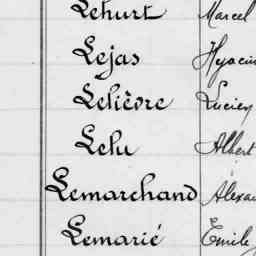 Lehurt Marcel
Lejas
Lelièvre Lucien
Lelu Albert
Lemarchand
Lemarié Emile